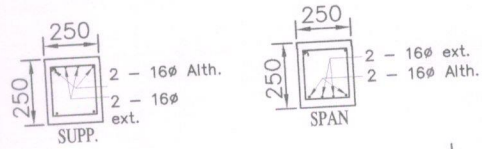 250
250
2 - 16ø Alth.
2 - 16ø
ext.
SUPP.
250
250
2 - 16ø ext.
2 - 16ø Alth.
SPAN